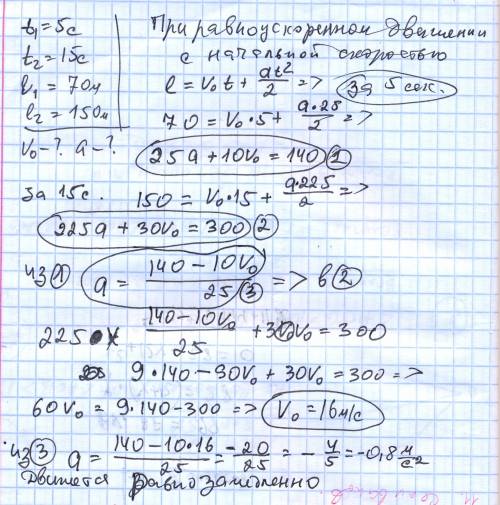 t₁ = 5с
t₂ = 15с
l₁ = 70м
l₂ = 150м
v₀ - ? a - ?
При равноускоренном движении
с начальной скоростью
l = v₀t + at²/2 => за 5 сек.
70 = v₀·5 + a·25/2 =>
25a + 10v₀ = 140 (1)
за 15с. 150 = v₀·15 + a·225/2 =>
225a + 30v₀ = 300 (2)
из (1) a = (140 - 10v₀)/25 (3) => в (2)
225 · (140 - 10v₀)/25 + 30v₀ = 300
9·140 - 90v₀ + 30v₀ = 300 =>
60v₀ = 9·140 - 300 => v₀ = 16м/с
из (3) a = (140 - 10·16)/25 = -20/25 = -4/5 = -0,8 м/с²
Движется равнозамедленно